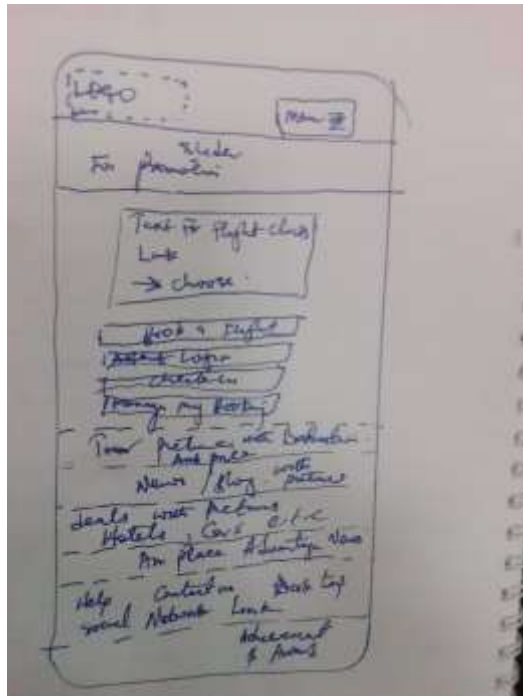 LOGO
Menu
Slider
For promotion
Text for flight class
Link
→ choose
Book a flight
Agent Login
Check-in
Manage my Booking
Tour Pictures with Destination
And price
News / Blog with
picture
deals with Pictures
Hotels, Cars e.t.c
place Advantage
Help Contact us Back top
social Network Link
& Awards